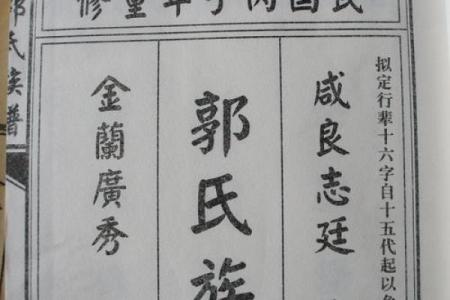 民國丙子年重修
拟定行辈十六字自十五代起以
咸良志廷
郭氏族
金蘭廣秀
郭氏族譜